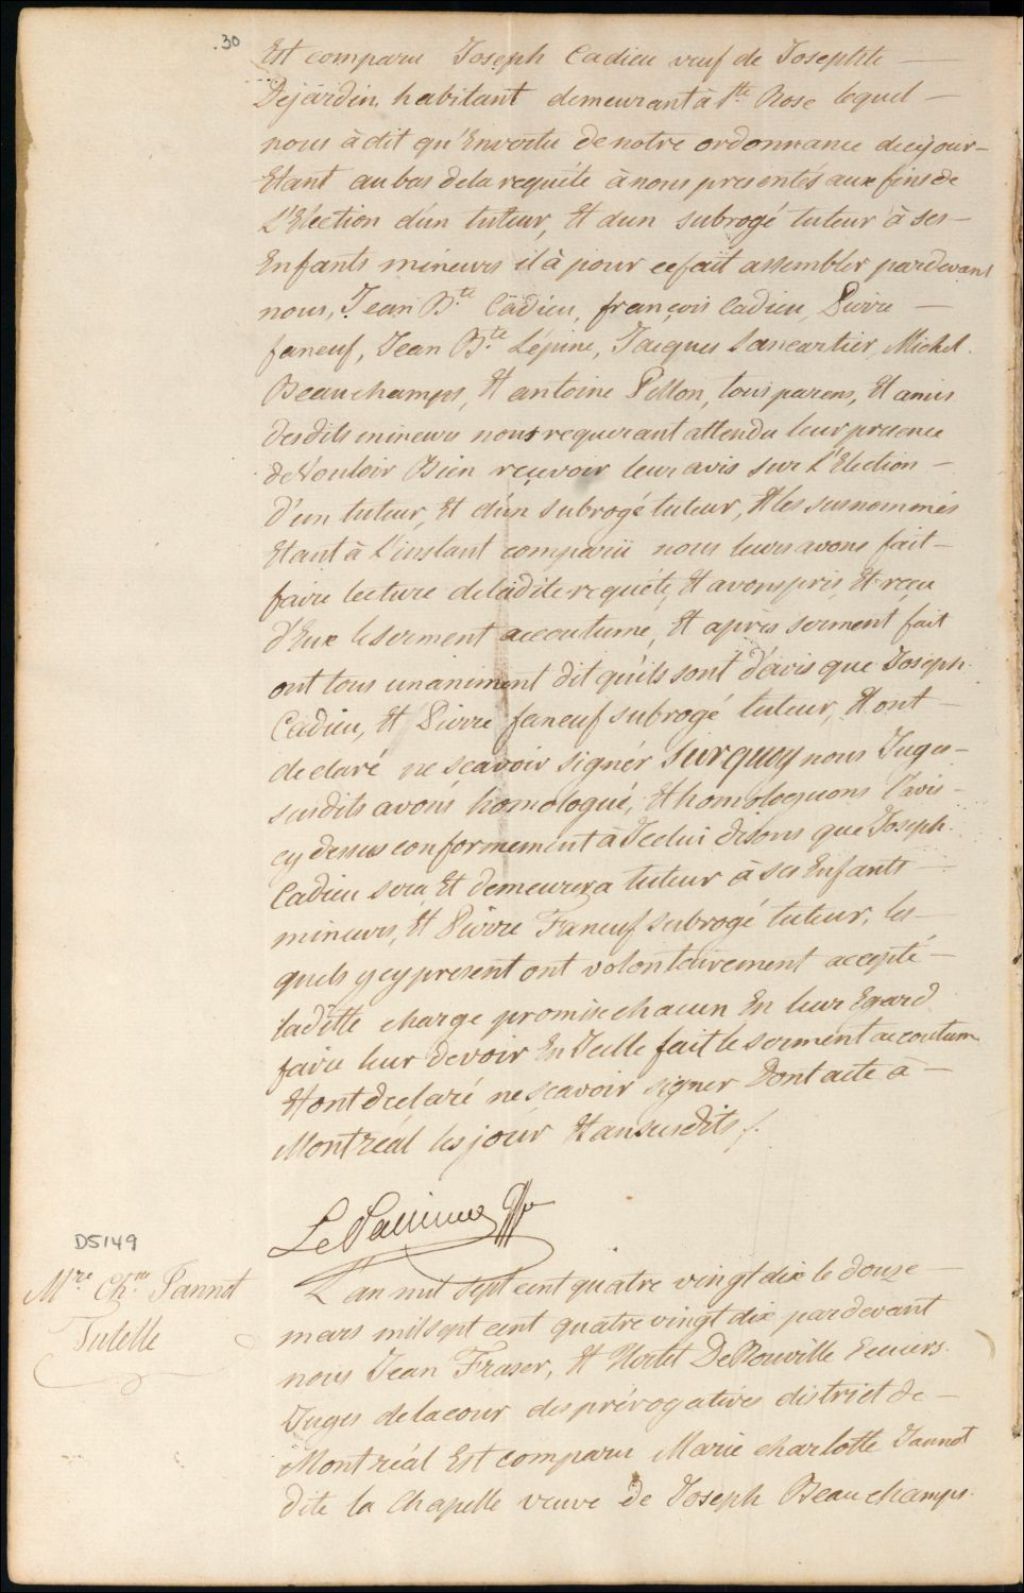 .30
Est comparu Joseph Cadieu veuf de Josephte —
Dejardin habitant demeurant à Ste Rose lequel —
nous à dit qu'Envertu de notre ordonnance de cejour —
Etant au bas dela requête à nous presentés aux fins de
L'Election d'un tuteur, Et dun subrogé tuteur à ses —
Enfants mineurs il à pour ce fait assembler pardevant
nous, Jean Bte Cadieu, françois Cadieu, Pierre —
faneuf, Jean Bte Lépine, Jacques Lancartier, Michel
Beauchamps, Et antoine Pellon, tous parens, Et amis
desdits mineurs nous requerant attendu leur presence
de Vouloir Bien reçevoir leur avis sur L'Election —
D'un tuteur, Et d'un subrogé tuteur, Et les susnommés
Etant à L'instant comparû nous leurs avons fait —
faire lecture deladite requête, Et avons pris, Et reçu
d'Eux le serment accoutumé, Et après serment fait
ont tous unaniment dit qu'ils sont d'avis que Joseph
Cadieu, Et Pierre faneuf subrogé tuteur, Et ont —
declaré ne sçavoir signer surquoy nous Juges —
susdits avons homologué, Et homologuons l'avis —
cy dessus conformement à Icelui disons que Joseph
Cadieu sera Et demeurera tuteur à ses Enfants —
mineurs, Et Pierre Faneuf subrogé tuteur, les —
quels y cy present ont volontairement accepté —
laditte charge promis chacun En leur Egard
faire leur devoir En Icelle fait le serment accoutum
Et ont declaré ne sçavoir signer Dont acte à —
Montréal les jour Et an susdits /.
D5149
Mre Chte Jannot
Tutelle
L'an mil sept cent quatre vingt dix le douze —
mars mil sept cent quatre vingt dix pardevant
nous Jean Fraser, Et Hertel De Rouville Ecuiers
Juges de la cour des prérogatives district de —
Montréal Est comparu Marie charlotte Jannot
dite la Chapelle veuve de Joseph Beauchamps